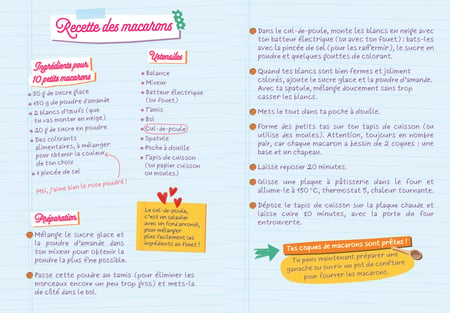 Recette des macarons
Ingrédients pour
10 petits macarons
50 g de sucre glace
150 g de poudre d'amande
2 blancs d'œufs (que
tu vas monter en neige)
20 g de sucre en poudre
Des colorants
alimentaires, à mélanger
pour obtenir la couleur
de ton choix
1 pincée de sel
Moi, j'aime bien le rose poudré !
Ustensiles
Balance
Mixeur
Batteur électrique
(ou fouet)
Tamis
Bol
Cul-de-poule
Spatule
Poche à douille
Tapis de cuisson
(ou papier cuisson
ou moules)
Le cul-de-poule,
c'est un saladier
avec un fond arrondi,
pour mélanger
plus facilement les
ingrédients au fouet !
Préparation
Mélange le sucre glace et
la poudre d'amande dans
ton mixeur pour obtenir la
poudre la plus fine possible.
Passe cette poudre au tamis (pour éliminer les
morceaux encore un peu trop gros) et mets-la
de côté dans le bol.
Dans le cul-de-poule, monte les blancs en neige avec
ton batteur électrique (ou avec ton fouet) : bats-les
avec la pincée de sel (pour les raffermir), le sucre en
poudre et quelques gouttes de colorant.
Quand tes blancs sont bien fermes et joliment
colorés, ajoute le sucre glace et la poudre d'amande.
Avec ta spatule, mélange doucement sans trop
casser les blancs.
Mets le tout dans ta poche à douille.
Forme des petits tas sur ton tapis de cuisson (ou
utilise les moules). Attention, toujours en nombre
pair, car chaque macaron a besoin de 2 coques : une
base et un chapeau.
Laisse reposer 20 minutes.
Glisse une plaque à pâtisserie dans le four et
allume-le à 150 °C, thermostat 5, chaleur tournante.
Dépose le tapis de cuisson sur la plaque chaude et
laisse cuire 10 minutes, avec la porte du four
entrouverte.
Tes coques de macarons sont prêtes !
Tu peux maintenant préparer une
ganache ou ouvrir un pot de confiture
pour fourrer les macarons.